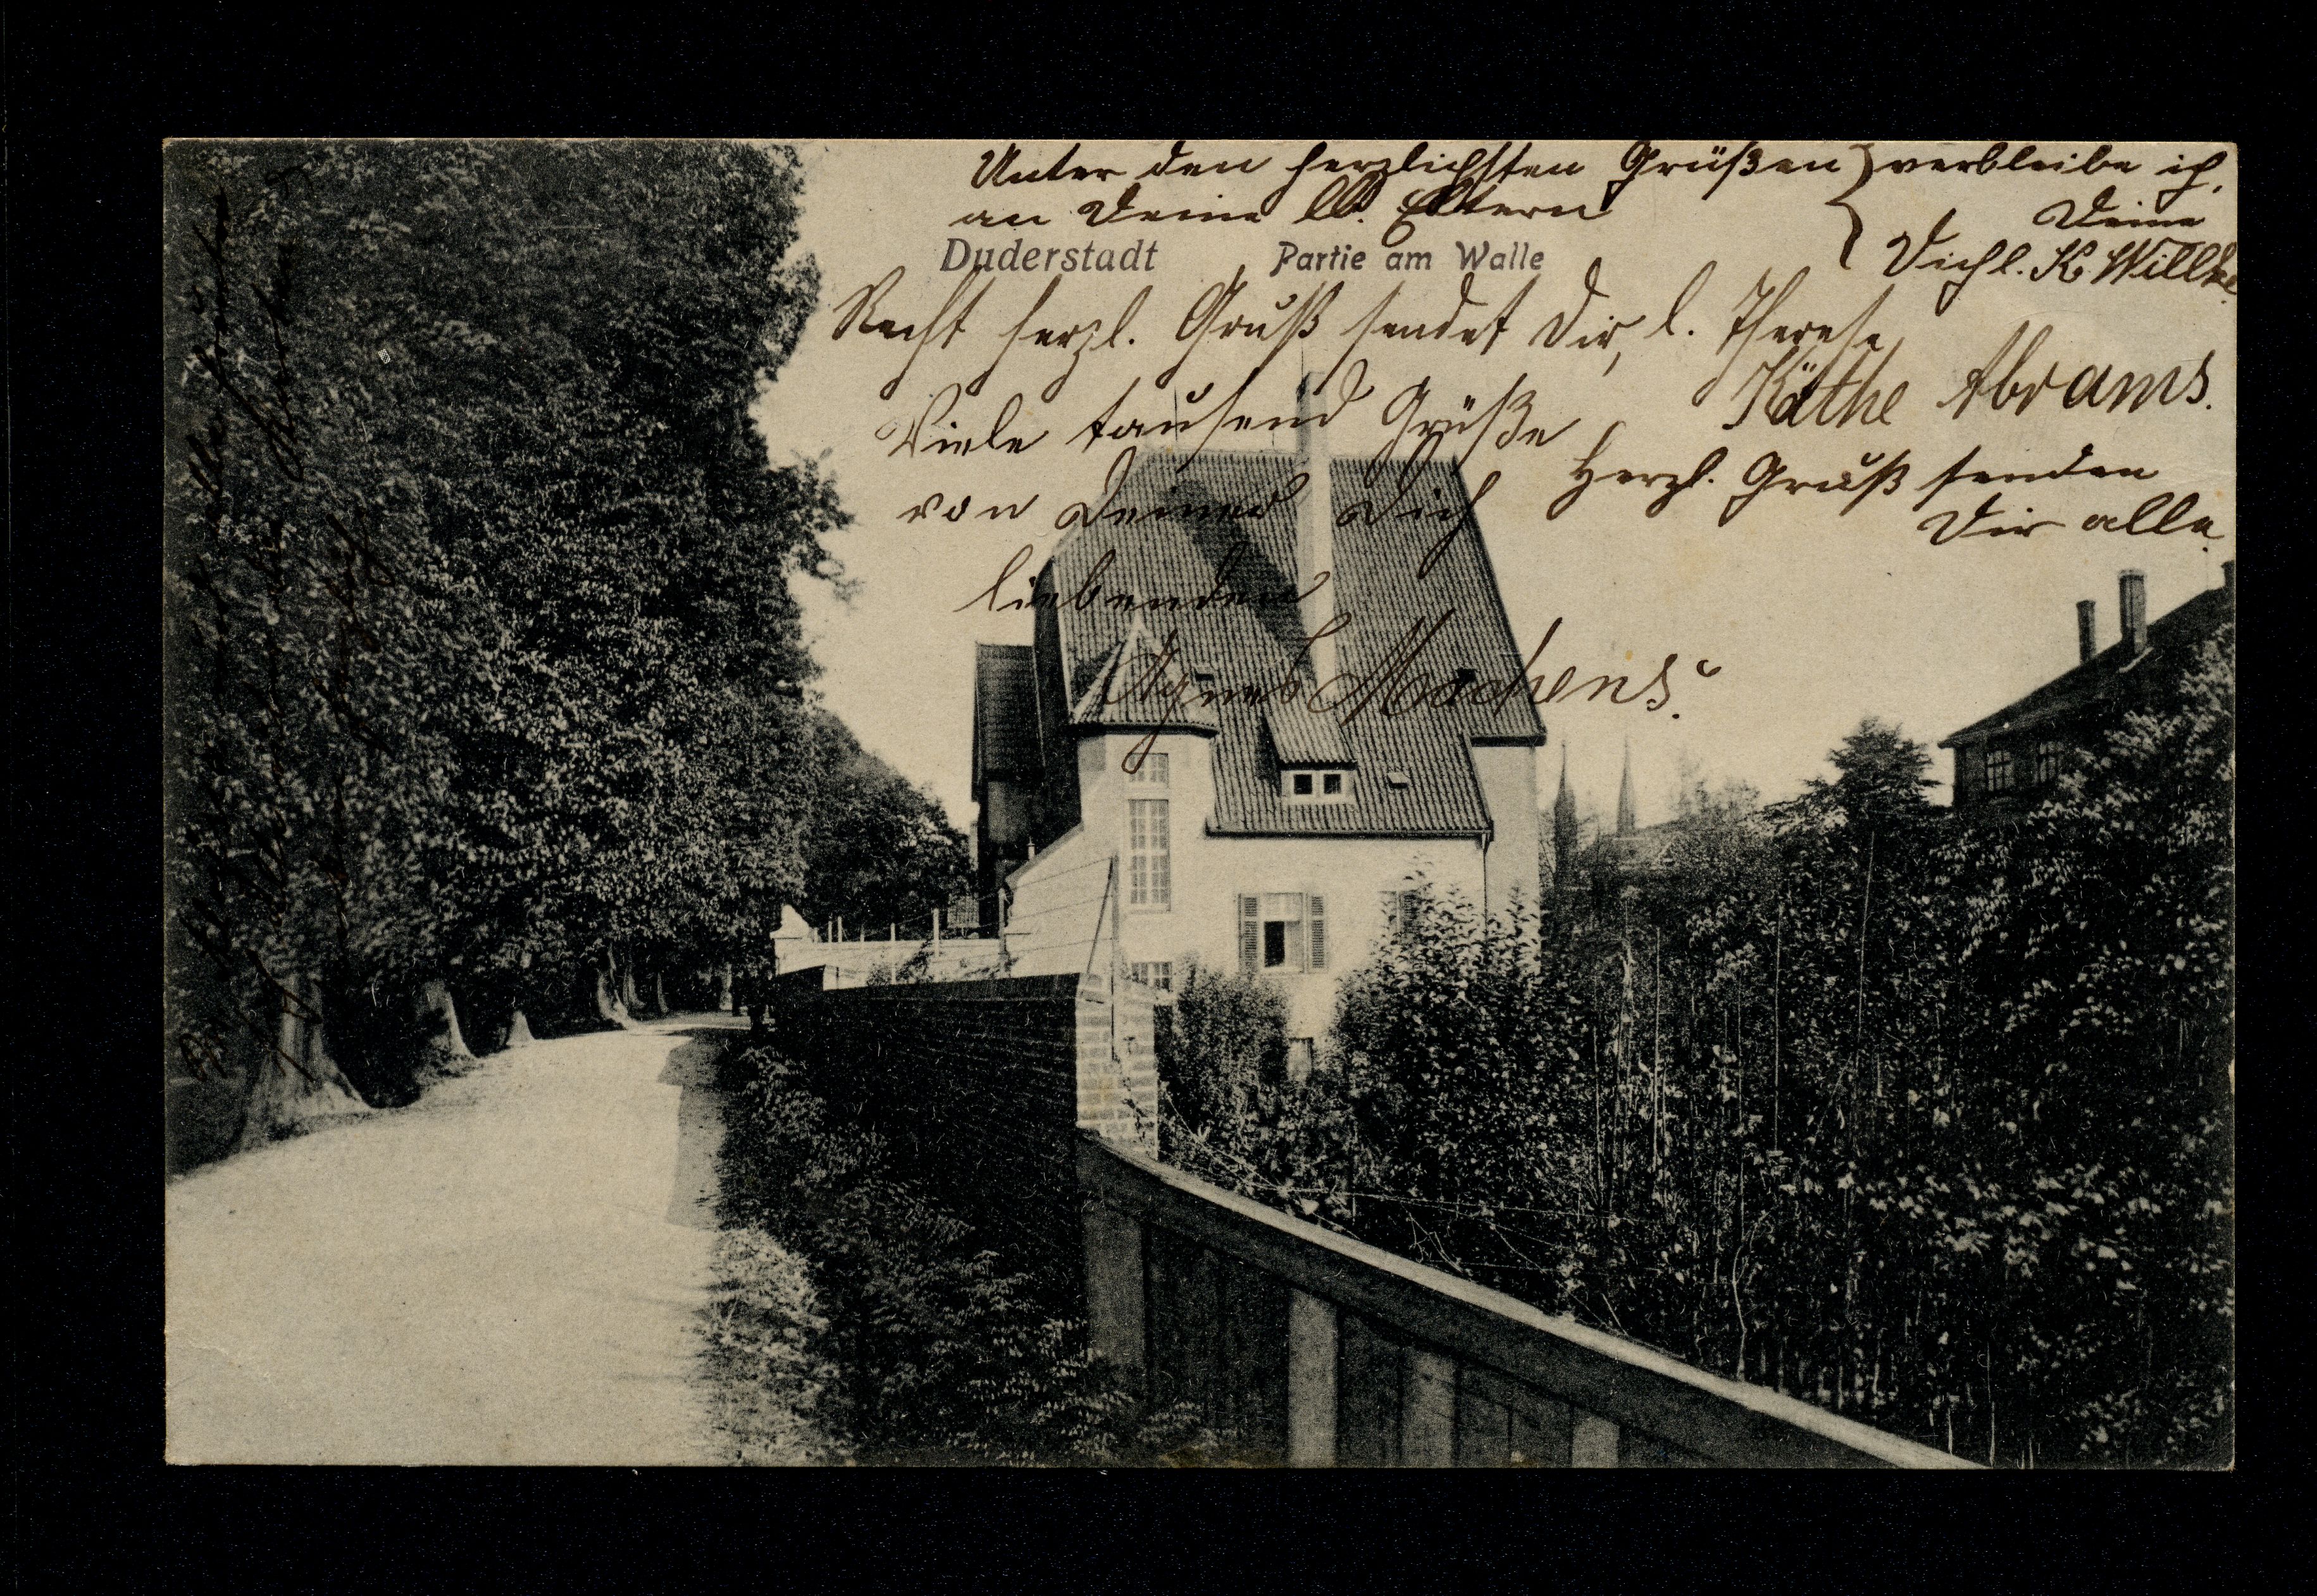 Unter den herzlichsten Grüßen } verbleibe ich,
an Deine lb. Eltern
Deine
Dichl. K. Willke.
Duderstadt Partie am Walle
Recht herzl. Gruß sendet Dir, l. Therese,
Käthe Abrams.
Viele tausend Grüße
von Deiner Dich
liebenden
Agnes Machens.
Herzl. Gruß senden
Dir alle.